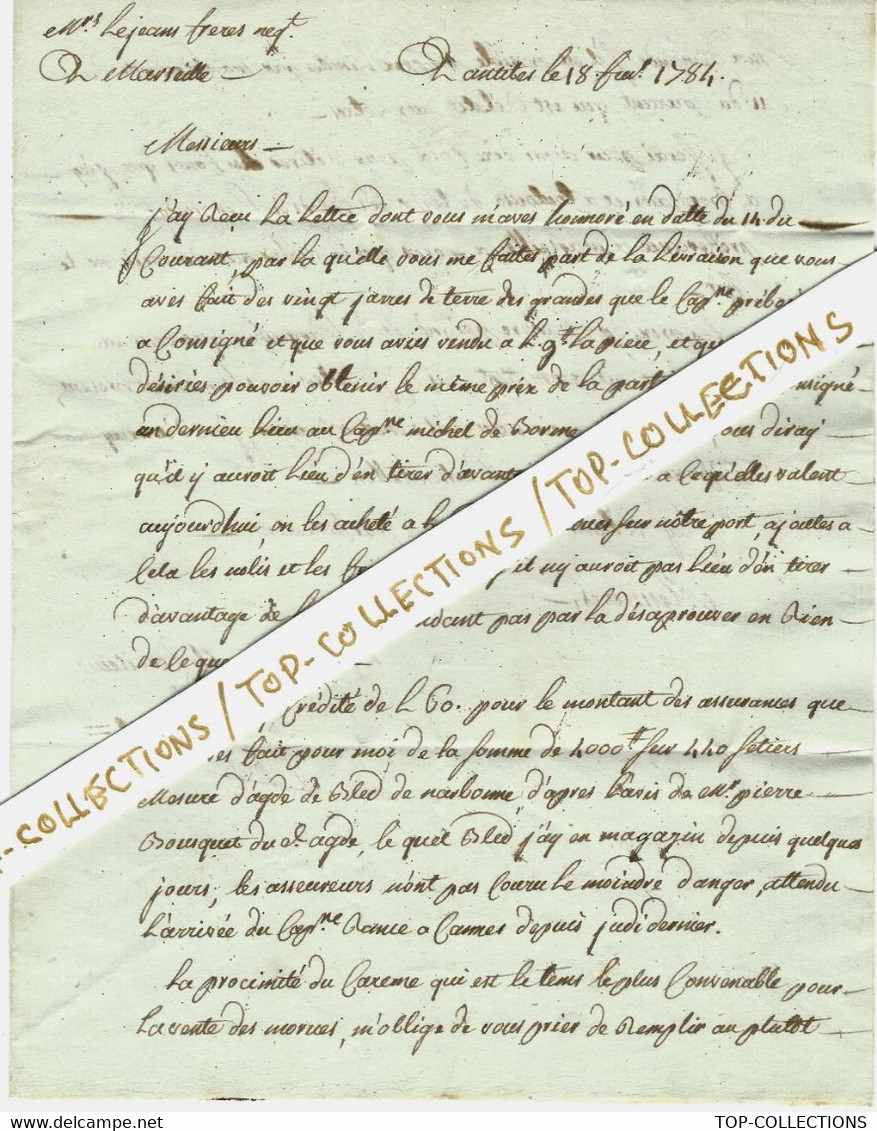 Mrs Lejeans freres negt.
A Marseille
A antibes le 18 fevr. 1784.
Messieurs
j'ay Reçu la lettre dont vous m'avés honnoré en datte du 14 du
Courant, par la qu'elle vous me faites part de la livraison que vous
avés fait des vingt jarres de terre des grandes que le Capne
a Consigné et que vous aviés vendu a la piece, et
désiriés pouvoir obtenir le même prix de la
en dernieu lieu au Capne michel de Borme
qu'il y auroit lieu d'en tirer a ce qu'elles valent
aujourdhui, on les acheté a sur nôtre port, ajoutés a
Cela les nolis et les il n'y auroit pas lieu d'en tirer
d'avantage de pas par la désaprouver en Rien
de ce que
crédité de L 60. pour le montant des assurances que
fait pour moi de la somme de 4000tt sur 440 setiers
Mesure d'agde de Bled de narbonne, d'apres l'avis de Mr. pierre
Bousquet du d. agde, le quel Bled j'ay en magazin depuis quelques
jours, les asseureurs n'ont pas Couru le moindre d'anger, attendu
L'arrivée du Capne Rance a Cannes depuis judi dernier.
La procimité du Careme qui est le tems le plus Convenable pour
La vente des morues, m'oblige de vous prier de Remplir au plutot
TOP-COLLECTIONS / TOP-COLLECTIONS / TOP-COLLECTIONS
TOP-COLLECTIONS